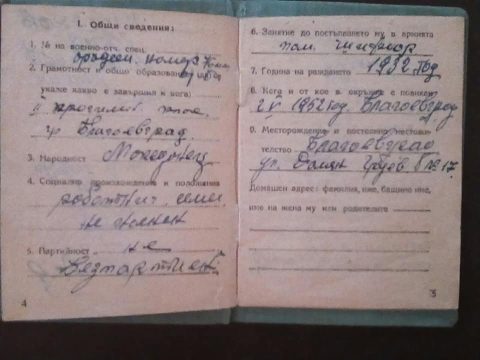 I. Общи сведения:
1. № на военно-отч. спец.
2. Грамотност и общо образование
укаже какво е завършил и кога)
гр. Благоевград
3. Народност Македонец
4. Социално произхождение и положение
работник, семе
не женен
5. Партийност не
Безпартиен
4
6. Занятие до постъпването му в армията
пом. шофьор
7. Година на раждането 1932 год
8. Кога и от кое в. окръжие е повикан
1952 год. Благоевград
9. Месторождение и постоянно местожи-
телство Благоевград
ул. № 17.
Домашен адрес: фамилия, име, бащино име,
име на жена му или родителите
5